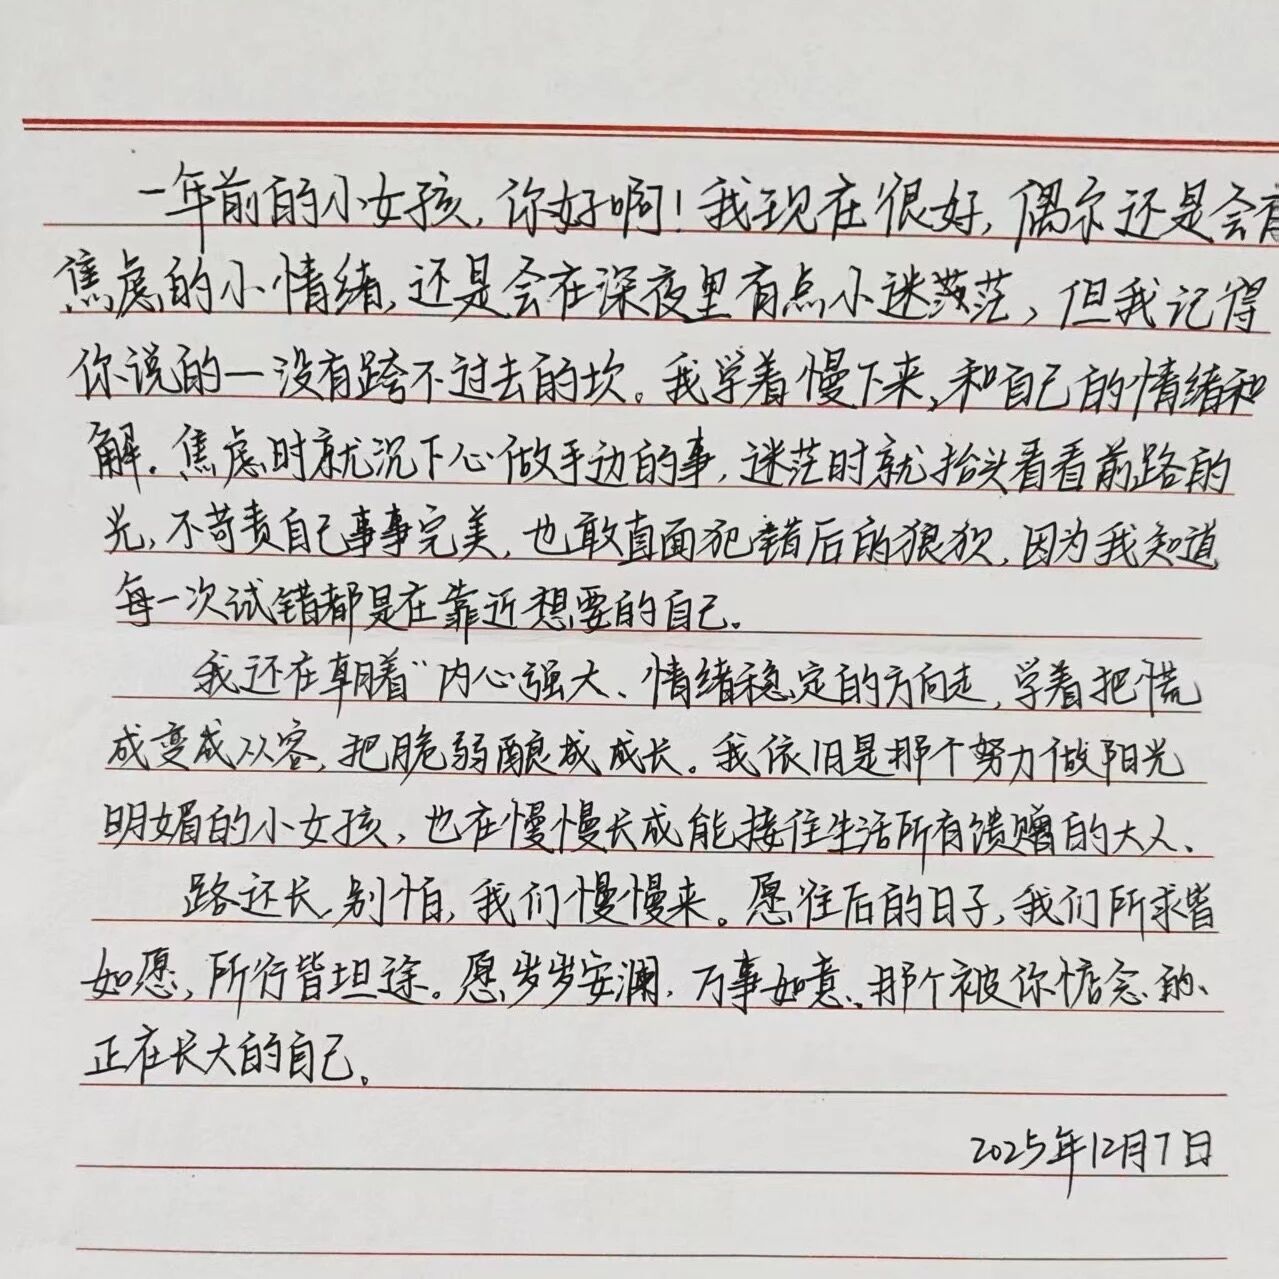 一年前的小女孩，你好啊！我现在很好，偶尔还是会有
焦虑的小情绪，还是会在深夜里有点小迷茫茫，但我记得
你说的一没有跨不过去的坎。我学着慢下来，和自己的情绪和
解．焦虑时就沉下心做手边的事，迷茫时就抬头看看前路的
光，不苛责自己事事完美，也敢直面犯错后的狼狈，因为我知道
每一次试错都是在靠近想要的自己。
我还在朝着“内心强大、情绪稳定的方向走，学着把慌
成变成从容，把脆弱酿成成长。我依旧是那个努力做阳光
明媚的小女孩，也在慢慢长成能接住生活所有馈赠的大人、
路还长，别怕，我们慢慢来。愿往后的日子，我们所求皆
如愿，所行皆坦途。愿岁岁安澜，万事如意、那个被你惦念的、
正在长大的自己。
2025年12月7日